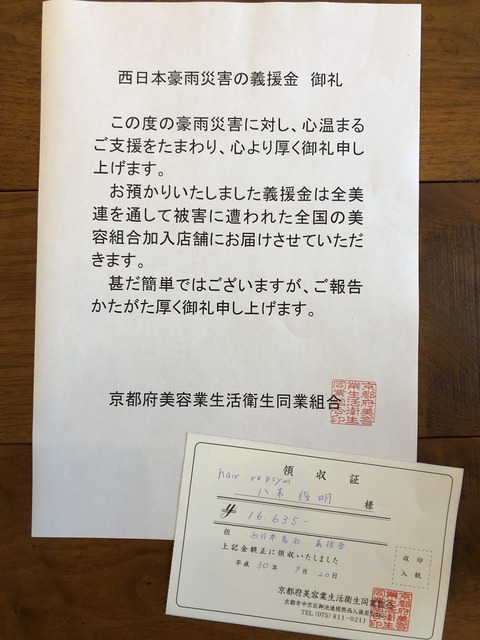 西日本豪雨災害の義援金 御礼
この度の豪雨災害に対し、心温まる
ご支援をたまわり、心より厚く御礼申し
上げます。
お預かりいたしました義援金は全美
連を通して被害に遭われた全国の美
容組合加入店舗にお届けさせていただ
きます。
甚だ簡単ではございますが、ご報告
かたがた厚く御礼申し上げます。
京都府美容業生活衛生同業組合
領収証
hair
八木 俊明 様
¥ 16.635-
但 西日本豪雨 義援金
上記金額正に領収いたしました
平成 30 年 9 月 20 日
収入
印紙
京都府美容業生活衛生同業組合
京都市中京区御池通猪熊西入
TEL(075)811-0211